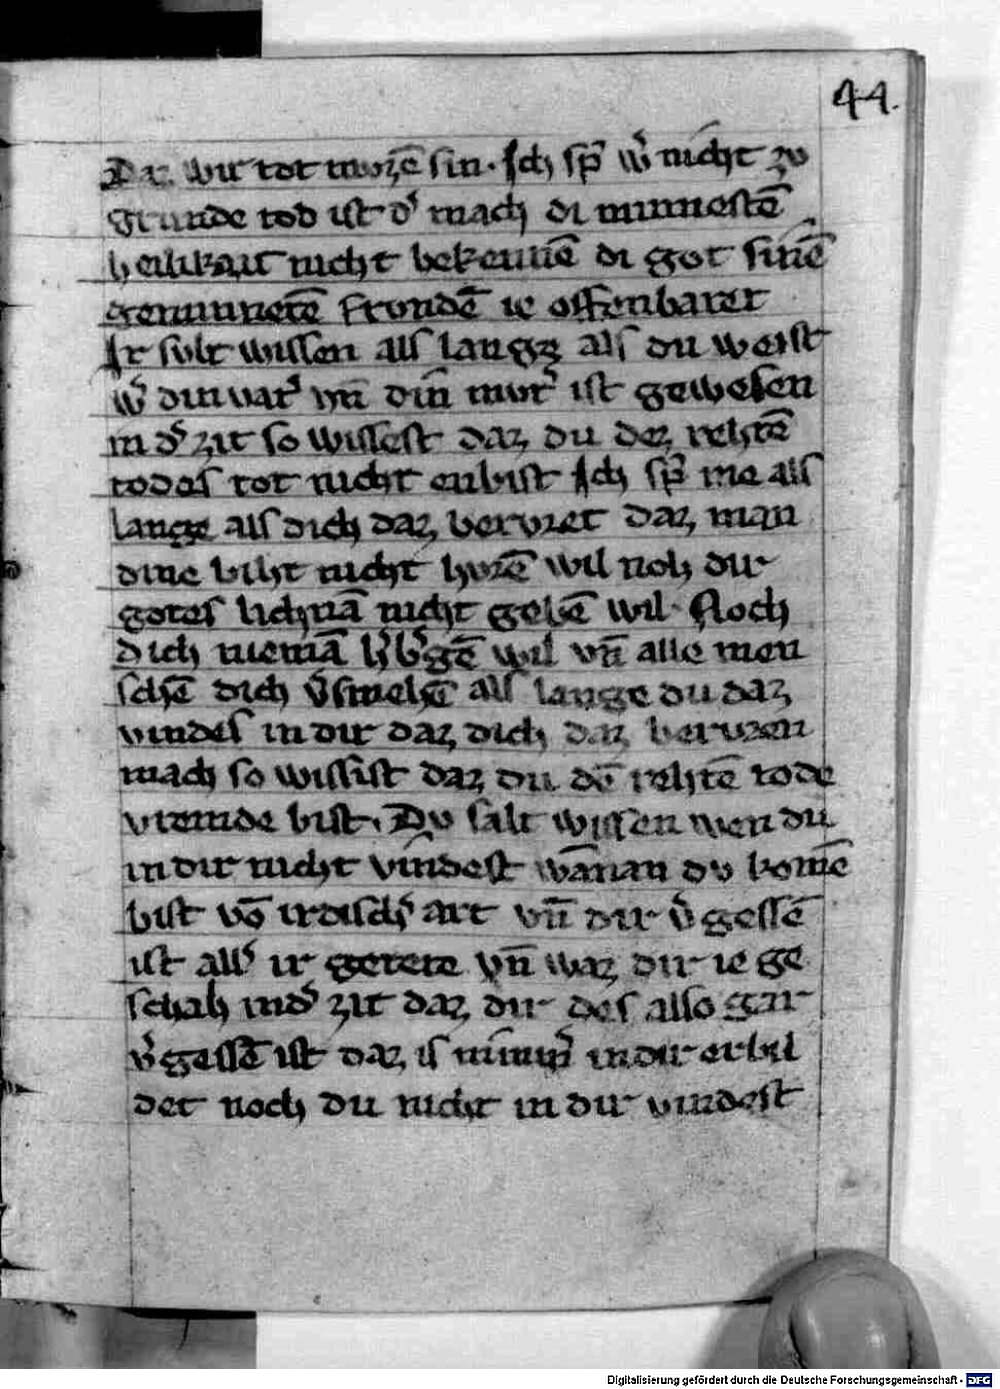 44.
Daz wir tot mvͦzē sin. Ich sp̄ wˢ nicht zv
grunde tod ist dˢ mach di minnestē
heilikait nicht bekennē di got sinē
geminnetē frvndē ie offenbaret
Ir svlt wissen als lange als du weist
wˢ din vatˢ vn̄ din mvtˢ ist gewesen
in dˢ zit so wissest daz du dez rehtē
todes tot nicht enbist Ich sp̄ me als
lange als dich daz bervret daz man
dine biht nicht hvrē wil noh dir
gotes lichnā nicht gebē wil. Noch
dich niemā hˢbˢgē wil vn̄ alle men
schē dich vˢsmehē als lange du daz
vindes in dir daz dich daz bervren
mach so wissist daz du dē rehtē tode
vremde bist. Dv salt wissen wen du
in dir nicht vindest wānan dv komē
bist vō irdischˢ art vn̄ dir vˢgessē
ist allˢ ir getete vn̄ waz dir ie ge
schah indˢ zit daz dir des also gar
vˢgessē ist daz is nimmˢ in dir erbil
det noch du nicht in dir vindest
Digitalisierung gefördert durch die Deutsche Forschungsgemeinschaft - DFG